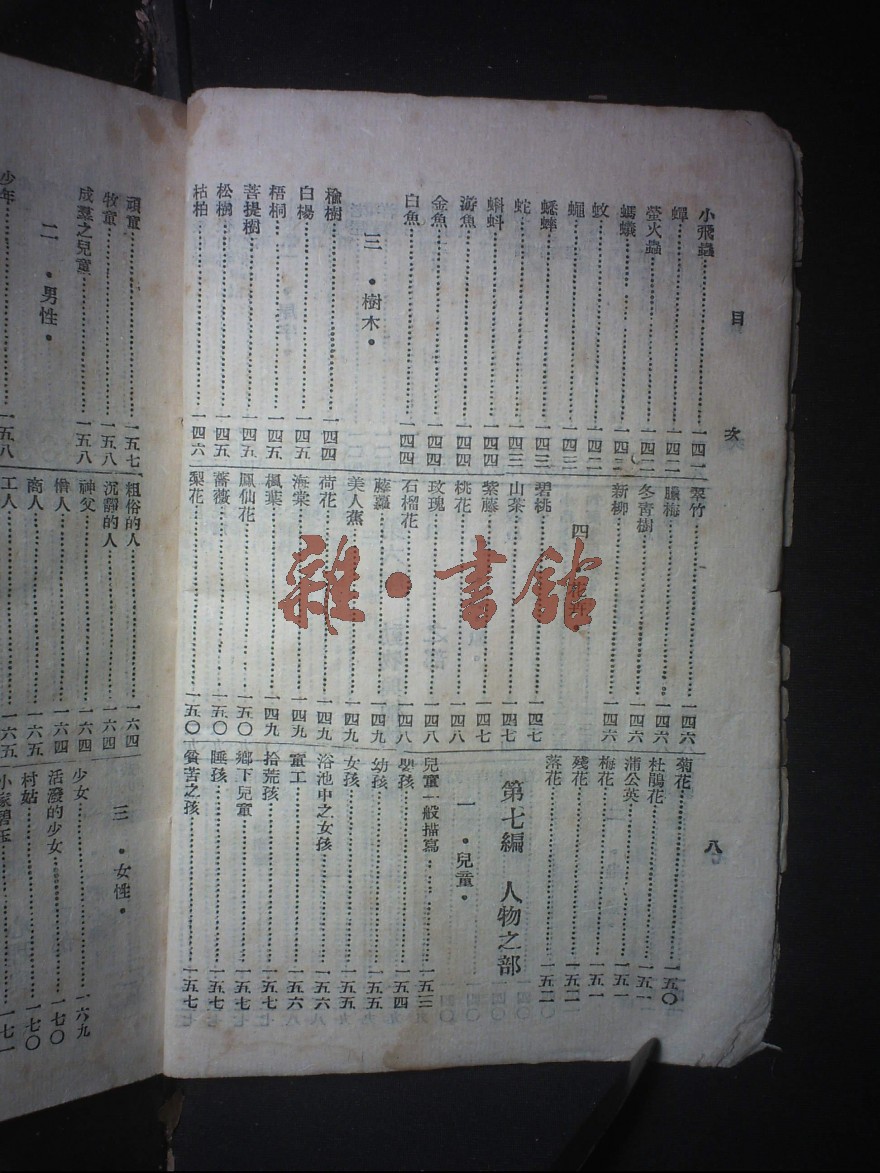 目 次 八
小飛蟲 一四二
蟬 一四二
螢火蟲 一四二
螞蟻 一四二
蚊 一四二
蠅 一四三
蟋蟀 一四三
蛇 一四三
蝌蚪 一四四
游魚 一四四
金魚 一四四
白魚 一四四
三・樹木・
一四四
白楊 一四五
梧桐 一四五
菩提樹 一四五
松樹 一四五
枯柏 一四六
翠竹 一四六
臘梅 一四六
冬青樹 一四六
新柳 一四六
四
碧桃 一四七
山茶 一四七
紫藤 一四七
桃花 一四八
玫瑰 一四八
石榴花 一四八
藤蘿 一四九
美人蕉 一四九
荷花 一四九
海棠 一四九
楓葉 一四九
鳳仙花 一五〇
薔薇 一五〇
梨花 一五〇
菊花 一五〇
杜鵑花 一五一
蒲公英 一五一
梅花 一五一
殘花 一五二
落花 一五二
第七編 人物之部
一・兒童・
兒童一般描寫 一五三
嬰孩 一五四
幼孩 一五五
女孩 一五五
浴池中之女孩 一五六
童工 一五六
拾荒孩 一五七
鄉下兒童 一五七
睡孩 一五七
貧苦之孩 一五七
頑童 一五七
牧童 一五八
成羣之兒童 一五八
二・男性・
少年 一五八
粗俗的人 一六四
沉靜的人 一六四
神父 一六四
僧人 一六四
商人 一六五
工人 一六五
三・女性・
少女 一六九
活潑的少女 一七〇
村姑 一七〇
小家碧玉 一七一
雜・書館